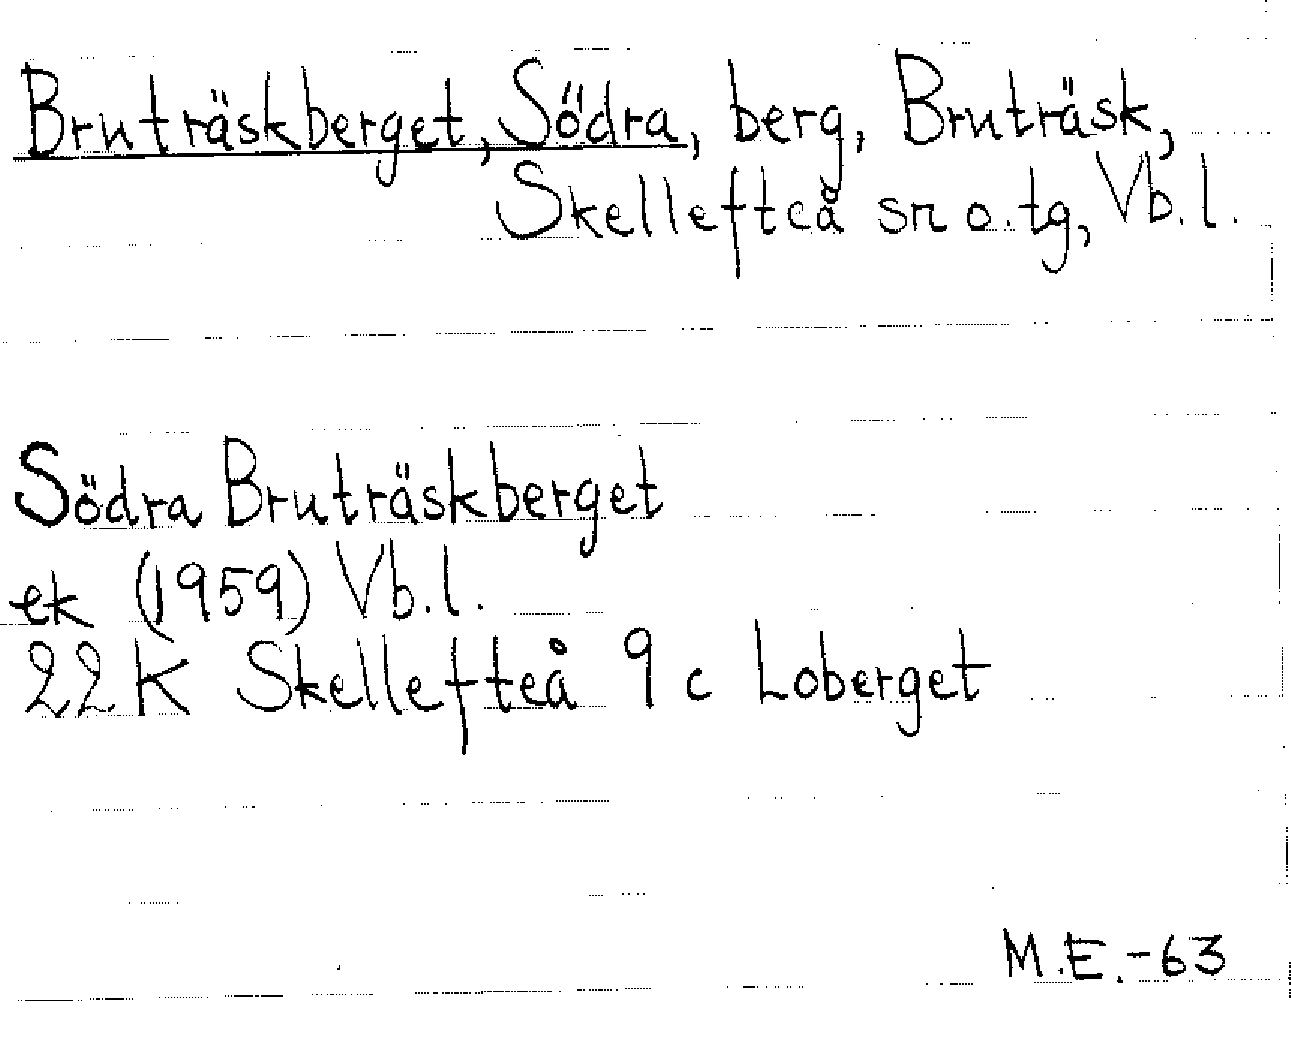 Bruträskberget, Södra, berg, Bruträsk,
Skellefteå sn o. tg, Vb. l.
Södra Bruträskberget
ek (1959) Vb. l.
22 K Skellefteå 9 c Loberget
M.E.-63